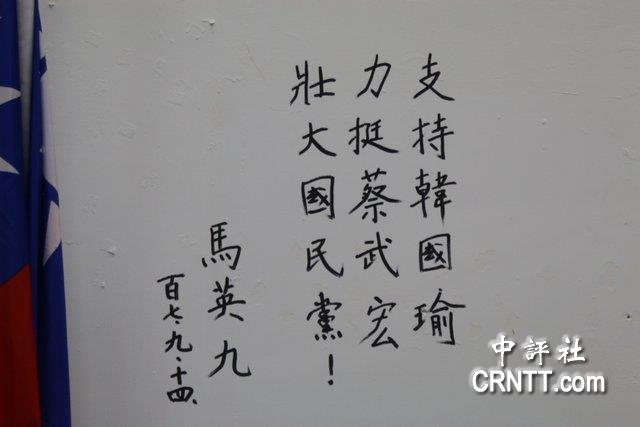 支持韓國瑜
力挺蔡武宏
壯大國民黨！
馬英九
百七、九、十四、
中評社
CRNTT.com